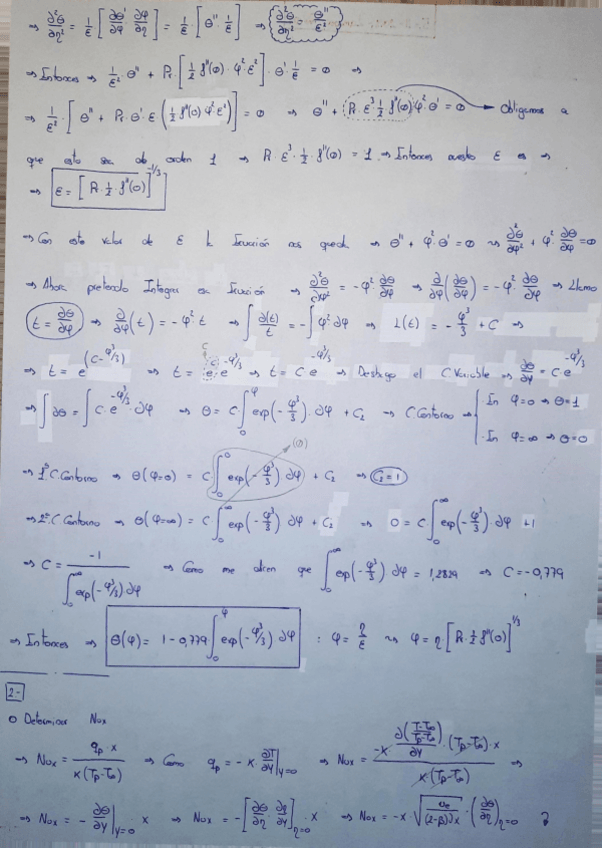 ⇒ ∂²θ/∂η² = 1/ε [ ∂θ'/∂φ ∂φ/∂η ] = 1/ε [ θ'' · 1/ε ] ⇒ ∂²θ/∂η² = θ''/ε²
⇒ Entonces ⇒ 1/ε² · θ'' + Pr · [ 1/2 f''(0) · φ² · ε² ] · θ' · 1/ε = 0 ⇒
⇒ 1/ε² · [ θ'' + Pr · θ' · ε ( 1/2 f''(0) φ² ε² ) ] = 0 ⇒ θ'' + Pr · ε³ · 1/2 f''(0) φ² · θ' = 0 → Obligamos a
que esto sea de orden 1 ⇒ Pr · ε³ · 1/2 · f''(0) = 1 ⇒ Entonces nuestro ε es ⇒
⇒ ε = [ Pr · 1/2 · f''(0) ]^(-1/3)
⇒ Con este valor de ε la Ecuación nos queda ⇒ θ'' + φ² · θ' = 0 ⇒ ∂²θ/∂φ² + φ² · ∂θ/∂φ = 0
⇒ Ahora pretendo Integrar esa Ecuación ⇒ ∂²θ/∂φ² = -φ² · ∂θ/∂φ ⇒ ∂/∂φ (∂θ/∂φ) = -φ² · ∂θ/∂φ ⇒ Llamo
t = ∂θ/∂φ ⇒ ∂/∂φ (t) = -φ² · t ⇒ ∫ ∂(t)/t = -∫ φ² ∂φ ⇒ L(t) = - φ³/3 + C ⇒
⇒ t = e^(C-φ³/3) ⇒ t = e^C · e^(-φ³/3) ⇒ t = C · e^(-φ³/3) ⇒ Deshago el C Variable ⇒ ∂θ/∂φ = C · e^(-φ³/3)
⇒ ∫ ∂θ = ∫ C · e^(-φ³/3) · ∂φ ⇒ θ = C ∫₀^φ exp(-φ³/3) · ∂φ + C₂ ⇒ C Contorno ⇒ { · En φ=0 ⇒ θ=1
· En φ=∞ ⇒ θ=0
(0)
⇒ 1ª C. Contorno ⇒ θ(φ=0) = C ∫₀^0 exp(-φ³/3) ∂φ + C₂ ⇒ C₂ = 1
⇒ 2ª C. Contorno ⇒ θ(φ=∞) = C ∫₀^∞ exp(-φ³/3) · ∂φ + C₂ ⇒ 0 = C ∫₀^∞ exp(-φ³/3) · ∂φ + 1
⇒ C = -1 / ∫₀^∞ exp(-φ³/3) ∂φ ⇒ Como me dicen que ∫₀^∞ exp(-φ³/3) ∂φ = 1,2879 ⇒ C = -0,779
⇒ Entonces ⇒ θ(φ) = 1 - 0,779 ∫₀^φ exp(-φ³/3) ∂φ : φ = η/ε ⇒ φ = η [ Pr · 1/2 · f''(0) ]^(1/3)
2-
o Determinar Nux
⇒ Nux = qp · x / K(Tp-T∞) ⇒ Como qp = -K · ∂T/∂y |y=0 ⇒ Nux = -K · ∂((T-T∞)/(Tp-T∞))/∂y · (Tp-T∞) · x / K·(Tp-T∞) ⇒
⇒ Nux = - ∂θ/∂y |y=0 · x ⇒ Nux = - [ ∂θ/∂η · ∂η/∂y ]η=0 · x ⇒ Nux = -x · √( ue/((2-β)νx) ) · (∂θ/∂η)η=0